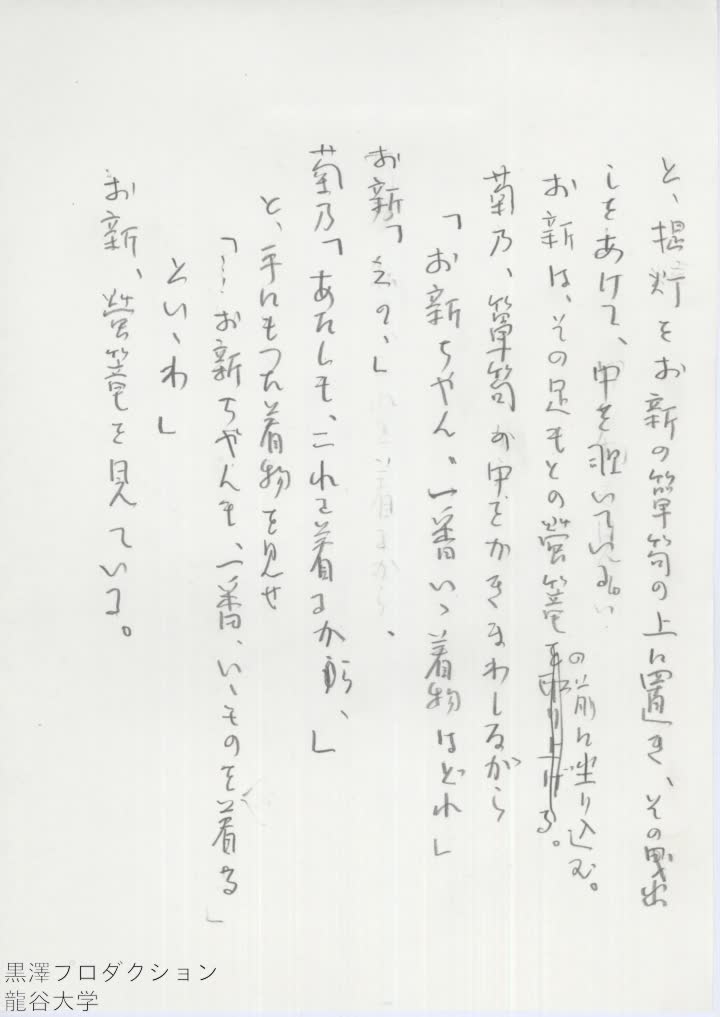 と、提灯をお新の箪笥の上に置き、その曳出
しをあけて、中を覗いている。
お新は、その足もとの螢籠を取り上げる。
の前に坐り込む。
菊乃、箪笥の中をかきまわしながら
「お新ちゃん、一番いゝ着物はどれ」
お新「えゝ、」
菊乃「あたしも、これを着るから、」
と、手にもった着物を見せ
「…お新ちゃんも、一番、いゝものを着る
といゝわ」
お新、螢籠を見ている。
黒澤プロダクション
龍谷大学